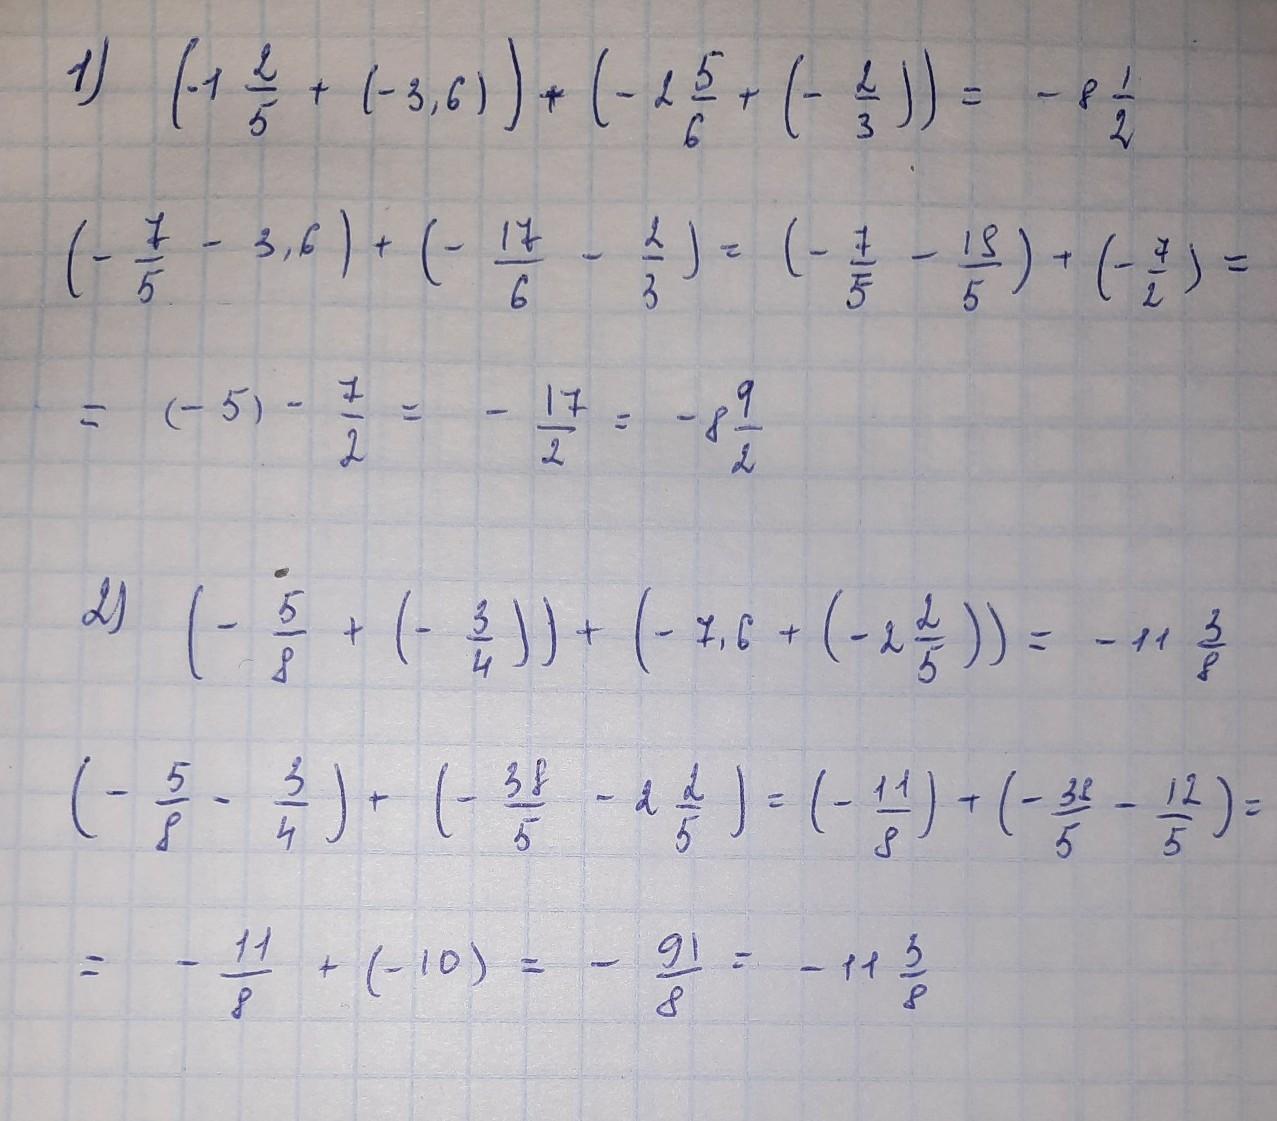 1) (-1 2/5 + (-3,6)) + (-2 5/6 + (- 2/3)) = -8 1/2
(- 7/5 - 3,6) + (- 17/6 - 2/3) = (- 7/5 - 18/5) + (- 7/2) =
= (-5) - 7/2 = - 17/2 = -8 9/2
2) (- 5/8 + (- 3/4)) + (-7,6 + (-2 2/5)) = -11 3/8
(- 5/8 - 3/4) + (- 38/5 - 2 2/5) = (- 11/8) + (- 38/5 - 12/5) =
= - 11/8 + (-10) = - 91/8 = -11 3/8